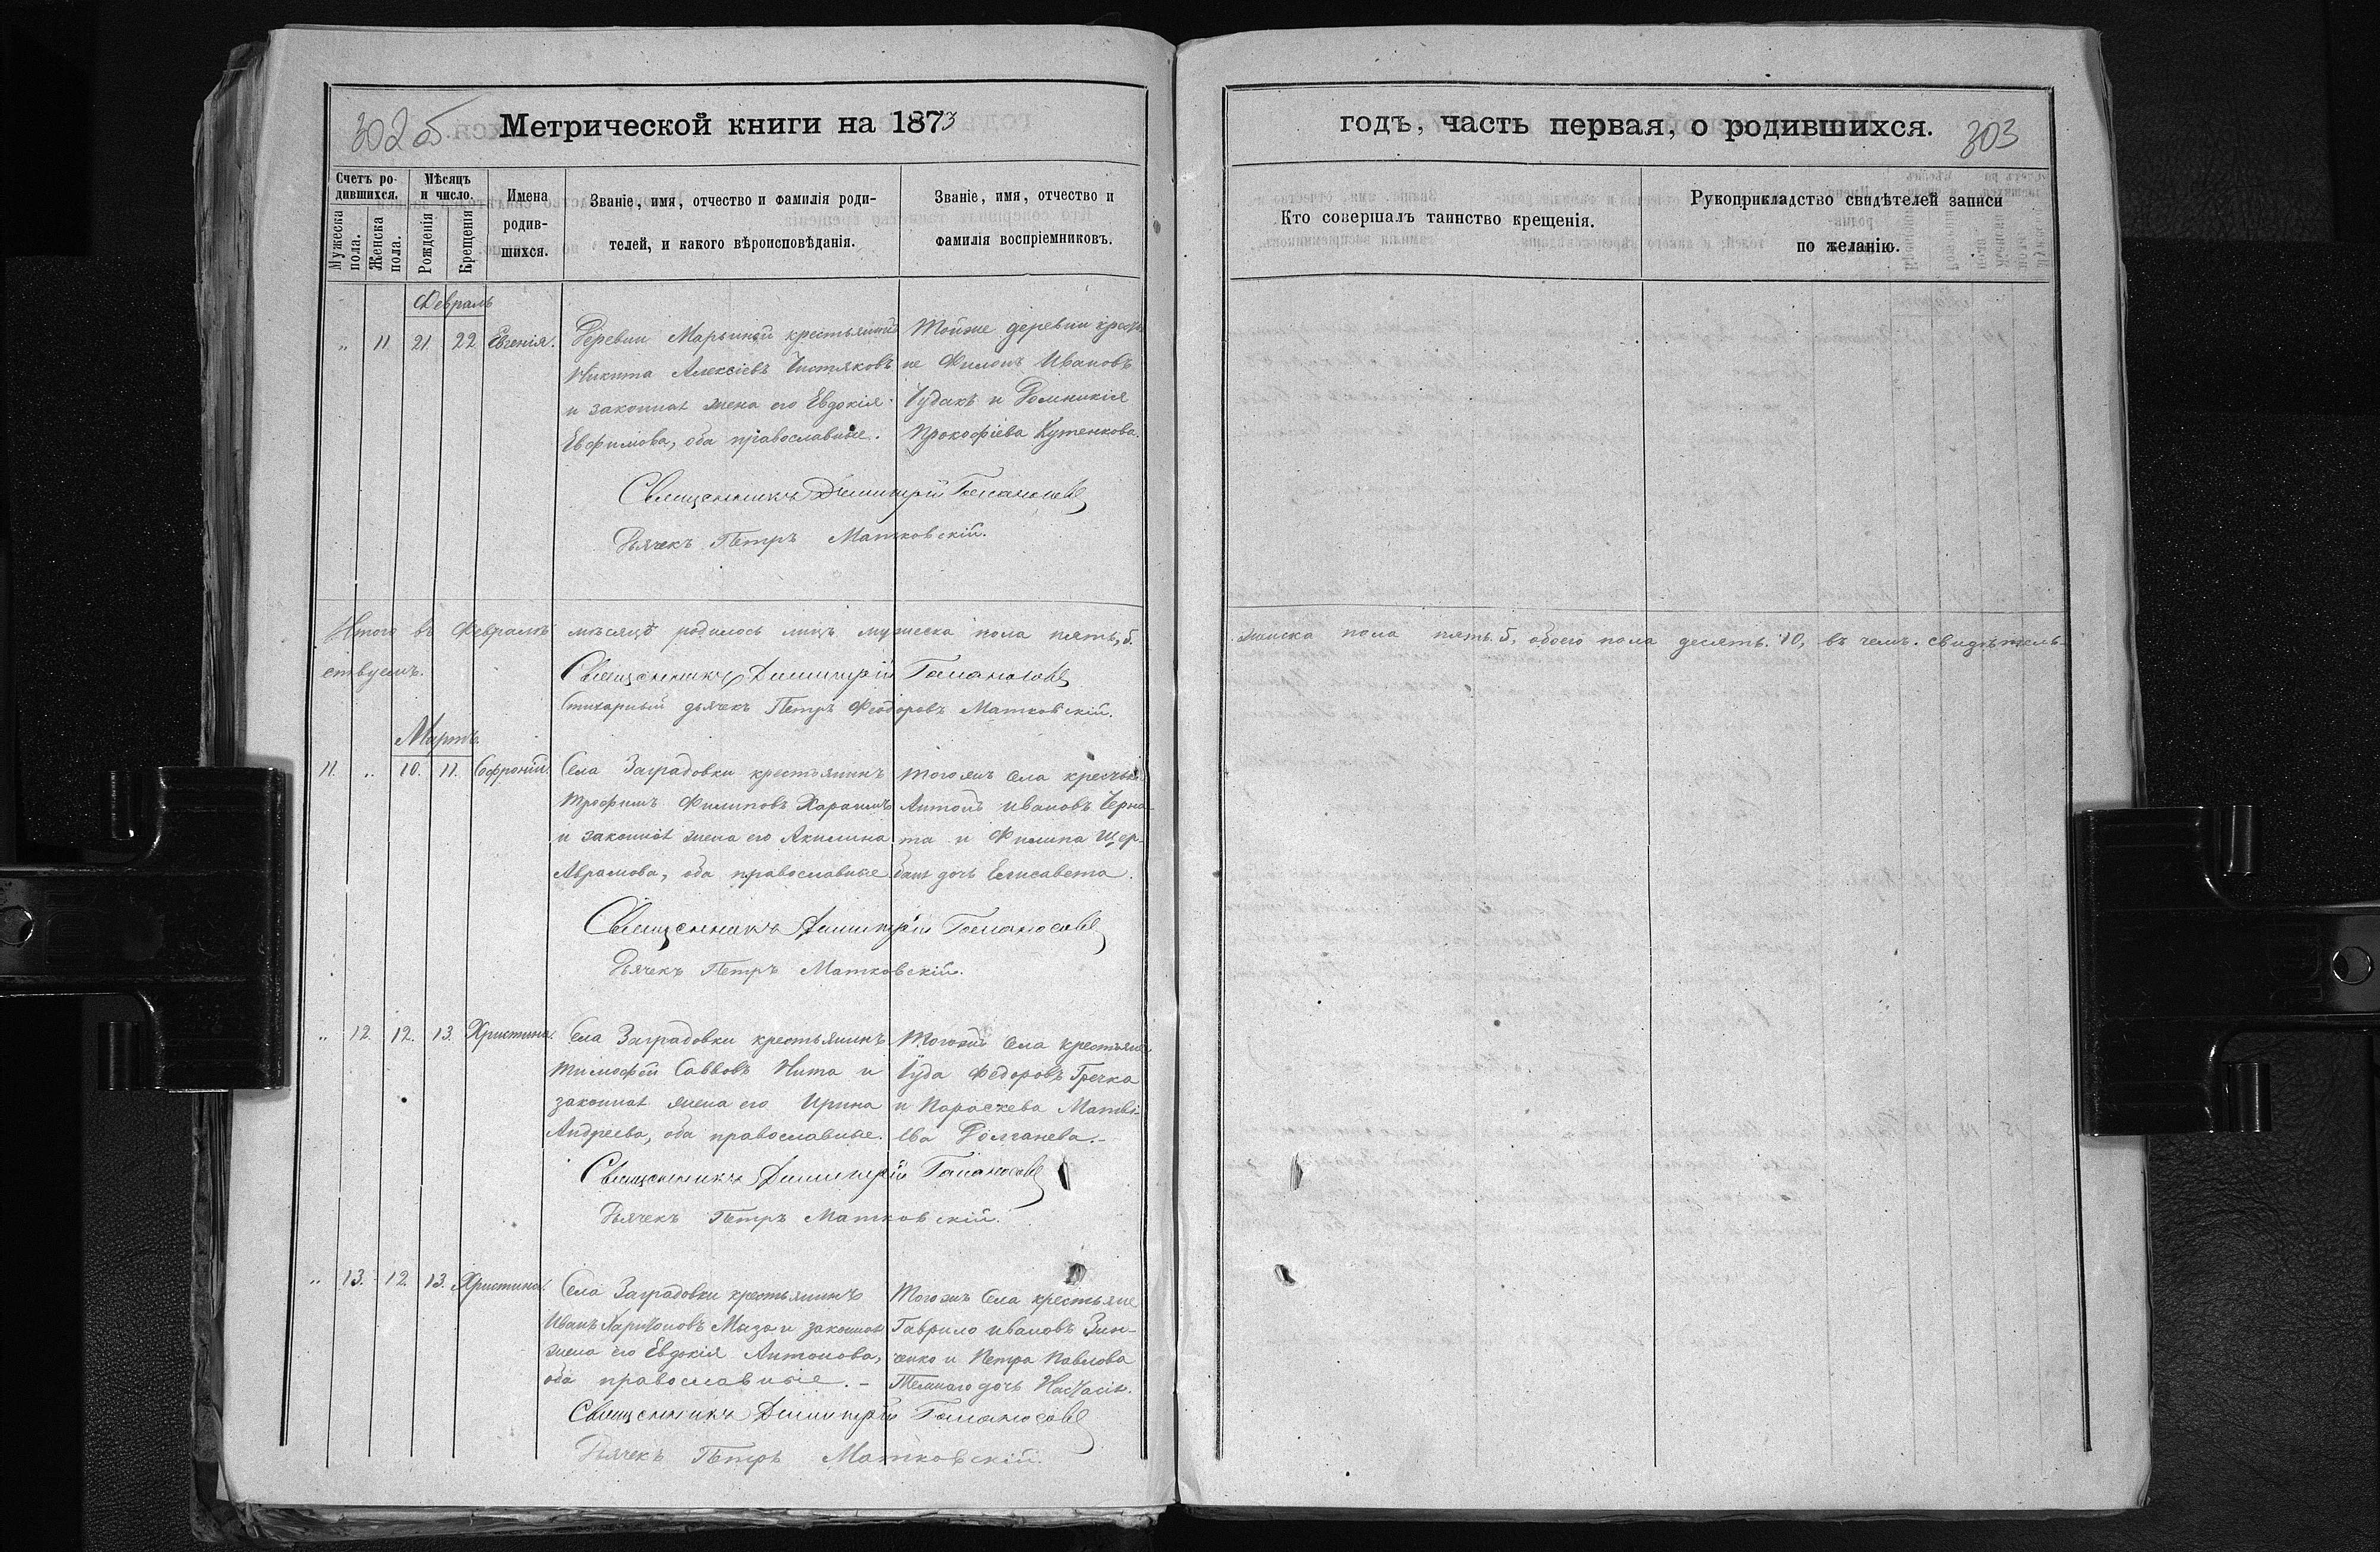 302 об
Метрической книги на 1873
годъ, часть первая, о родившихся.
303
Счетъ ро-
дившихся.
Мужеска пола.
Женска пола.
Мѣсяцъ
и число.
Рожденія
Крещенія
Имена
родив-
шихся.
Званіе, имя, отчество и фамилія роди-
телей, и какого вѣроисповѣданія.
Званіе, имя, отчество и
фамилія воспріемниковъ.
Кто совершалъ таинство крещенія.
Рукоприкладство свидѣтелей записи
по желанію.
Февраль
„ 11 21 22 Евгенія.
Деревни Марьиной крестьянинъ
Никита Алексіевъ Чистяковъ
и законная жена его Евдокія
Евфимова, оба православные.
Тойже деревни крестья
не Филонъ Ивановъ
Чудакъ и Домникія
Прокофіева Кутенкова.
Священникъ Димитрій
Дьячекъ Петръ Матковскій.
Итого въ Февралѣ мѣсяцѣ родилось лицъ мужеска пола пять, 5. женска пола пять 5, обоего пола десять. 10, въ чемъ свидѣтель-
ствуемъ.
Священникъ Димитрій
Стихарный дьячекъ Петръ Феодоровъ Матковскій.
Мартъ.
11. „ 10. 11. Софроній.
Села Заградовки крестьянинъ
Трофимъ Филиповъ
и законная жена его Акилина
Аврамова, оба православные
Тогожъ села крестьяне
Антонъ Ивановъ Черно-
та и Филипа Щер-
баня дочь Елисавета.
Священникъ Димитрій
Дьячекъ Петръ Матковскій.
„ 12. 12. 13. Христина.
Села Заградовки крестьянинъ
Тимофей Саввовъ Нита и
законная жена его Ирина
Андреева, оба православные.
Тогожъ села крестьяне
Іуда Федоровъ Гречка
и Параскева Матвѣ-
ева
Священникъ Димитрій
Дьячекъ Петръ Матковскій.
„ 13. 12. 13. Христина.
Села Заградовки крестьянинъ
Иванъ Харитоновъ Мызо и законная
жена его Евдокія Антонова,
оба православные. –
Тогожъ села крестьяне
Гаврило Ивановъ Зин-
ченко и Петра Павлова
Темнаго дочь Настасія.
Священникъ Димитрій
Дьячекъ Петръ Матковскій.